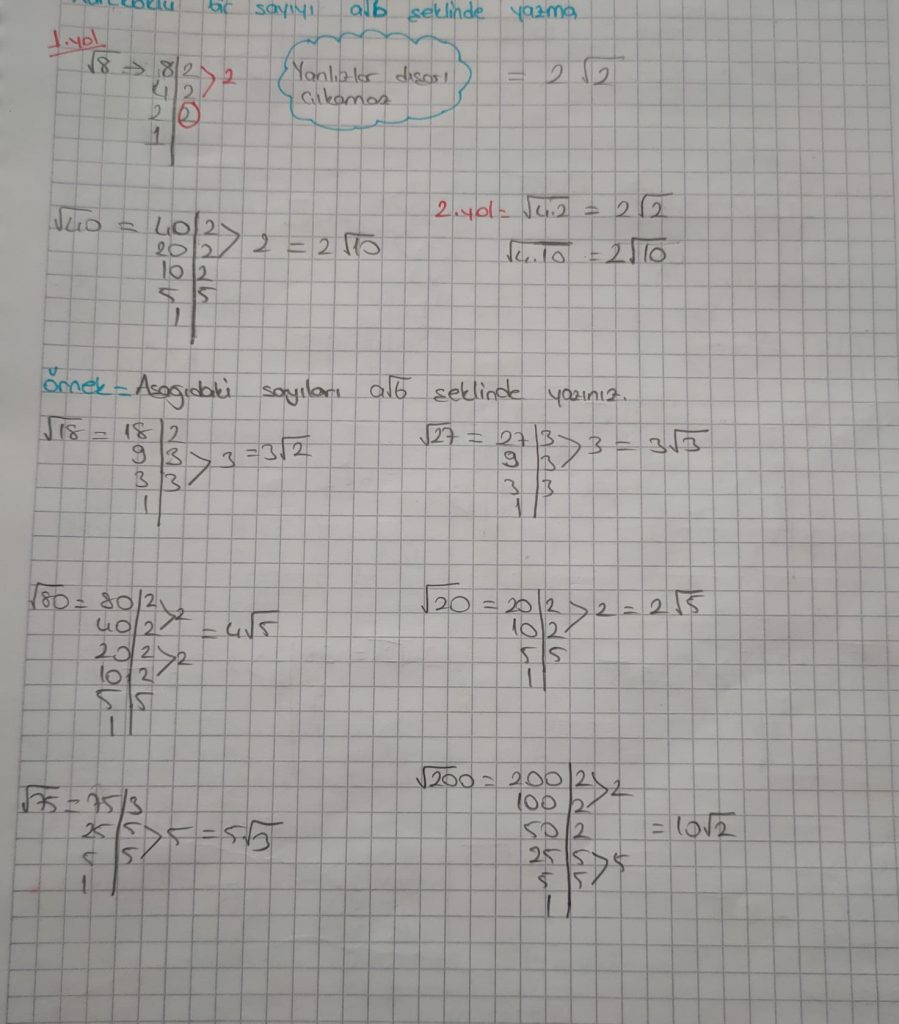 bir sayıyı a√b şeklinde yazma
1.yol
√8 → 8|2 > 2
4|2
2|2
1|
Yanlızlar dışarı
çıkamaz
= 2√2
√40 = 40|2 > 2 = 2√10
20|2
10|2
5|5
1|
2.yol = √4.2 = 2√2
√4.10 = 2√10
Örnek = Aşağıdaki sayıları a√b şeklinde yazınız.
√18 = 18|2
9|3 > 3 = 3√2
3|3
1|
√27 = 27|3 > 3 = 3√3
9|3
3|3
1|
√80 = 80|2 > 2
40|2 = 4√5
20|2 > 2
10|2
5|5
1|
√20 = 20|2 > 2 = 2√5
10|2
5|5
1|
√75 = 75|3
25|5 > 5 = 5√3
5|5
1|
√200 = 200|2 > 2
100|2
50|2 = 10√2
25|5 > 5
5|5
1|